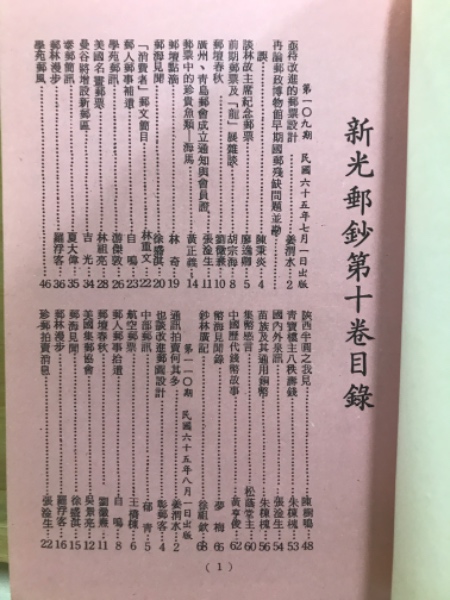 新光郵鈔第十卷目錄
第一〇九期 民國六十五年七月一日出版
亟待改進的郵票設計……姜渭水 2
再論郵政博物館早期國郵殘缺問題並勘
誤……陳秉炎 4
談林故主席紀念郵票……廖逸卿 5
前期郵票及「龍」展雜談……胡宗海 8
郵壇春秋……劉徽熹 10
廣州、青島郵會成立通知與會員證……張淦生 11
郵票中的珍貴魚類—海馬……黃正義 14
郵壇點滴……林奇 19
郵海見聞……徐盛淇 20
「消費者」郵文簡目……林重文 22
郵人郵事補遺……自鳴 23
學苑郵訊……游傑敦 26
美國名響郵票……林祖亮 28
曼谷將增設新郵區……吉光 34
零郵簡訊……夏大偉 35
郵林漫步……羅浮客 36
學苑郵風…… 46
陝西半兩之我見……陳樹鳴 48
青寶樓主八秩壽錢……朱棟槐 53
國內外泉訊……張淦生 54
苗族及其通用銅幣……朱棟槐 56
集幣感言……松蔭堂主 60
中國歷代錢幣故事……黃亨俊 62
幣海見聞錄……夢梅 65
鈔林廣記……徐祖欽 68
第一一〇期 民國六十五年八月一日出版
通訊拍賣何其多……姜渭水 2
也談改進郵園設計……彰郵客 4
中部郵訊……郁青 5
航空郵票……王禱棟 6
郵人郵事拾遺……自鳴 8
郵壇春秋……劉徽熹 11
美國集郵協會……吳景亮 12
郵海見聞……徐盛淇 15
郵林漫步……羅浮客 16
珍郵拍賣消息……張淦生 22
(1)